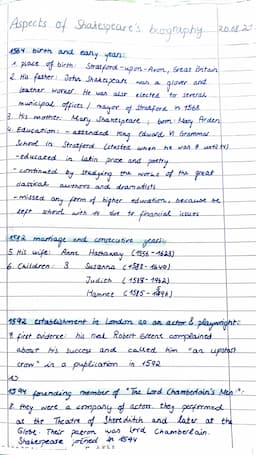 Aspects of Shakespeare's biography 20.08.21
1564 birth and early years:
1. place of birth: Stratford-upon-Avon, Great Britain
2. His father: John Shakespeare was a glover and
leather worker. He was also elected to several
municipal offices / mayor of Stratford in 1568
3. His mother: Mary Shakespeare, born: Mary Arden
4. Education: - attended King Edward VI Grammar
School in Stratford (started when he was
- educated in latin prose and poetry
- continued by studying the works of the great
classical authors and dramatists
- missed any form of higher education, because he
left school with 15 due to financial issues
1582 marriage and consecutive years:
5. His wife: Anne Hathaway (1556-1623)
6. Children: 3 Susanna (1583-1649)
Judith (1585-1662)
Hamnet (1585-1596)
1592 establishment in London as an actor & playwright:
7. first evidence: his rival Robert Greene complained
about his success and called him "an upstart
crow" in a publication in 1592
1594 founding member of "The Lord Chamberlain's Men":
8. they were a company of actors. they performed
at the Theatre of Shoreditch and later at the
Globe. Their patron was Lord Chamberlain.
Shakespeare joined in 1594